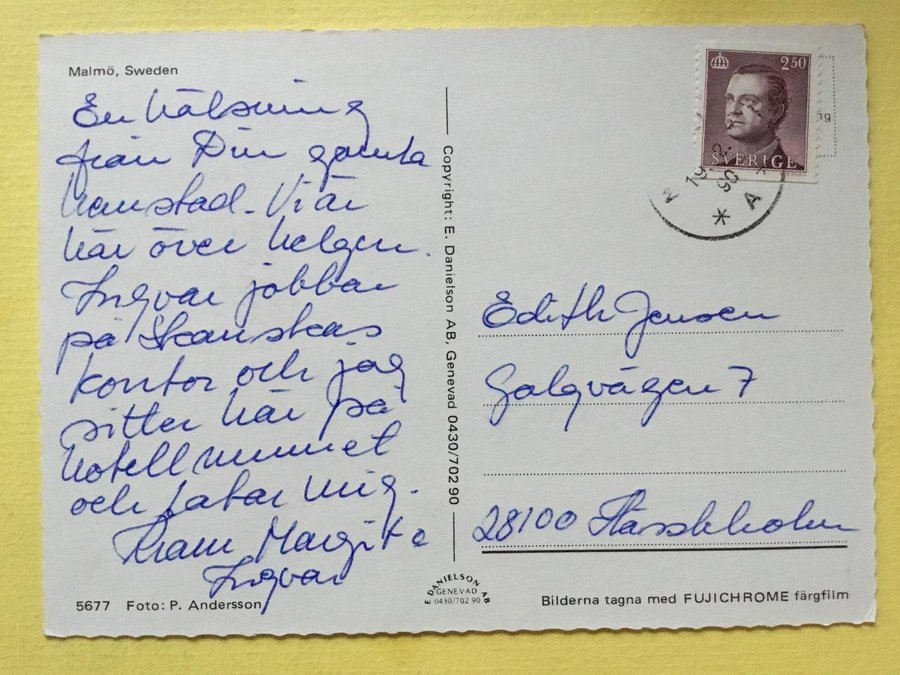 Malmö, Sweden
En hälsning
från Din gamla
hemstad. Vi är
här över helgen.
Ingvar jobbar
på Skanskas
kontor och jag
sitter här på
hotellrummet
och latar mig.
Kram Margita
Ingvar
5677 Foto: P. Andersson
Copyright: E. Danielson AB, Genevad 0430/702 90
E DANIELSON AB
GENEVAD
0430/702 90
2.50
SVERIGE
A
Edith Jensen
Galgvägen 7
28100 Hässleholm
Bilderna tagna med FUJICHROME färgfilm